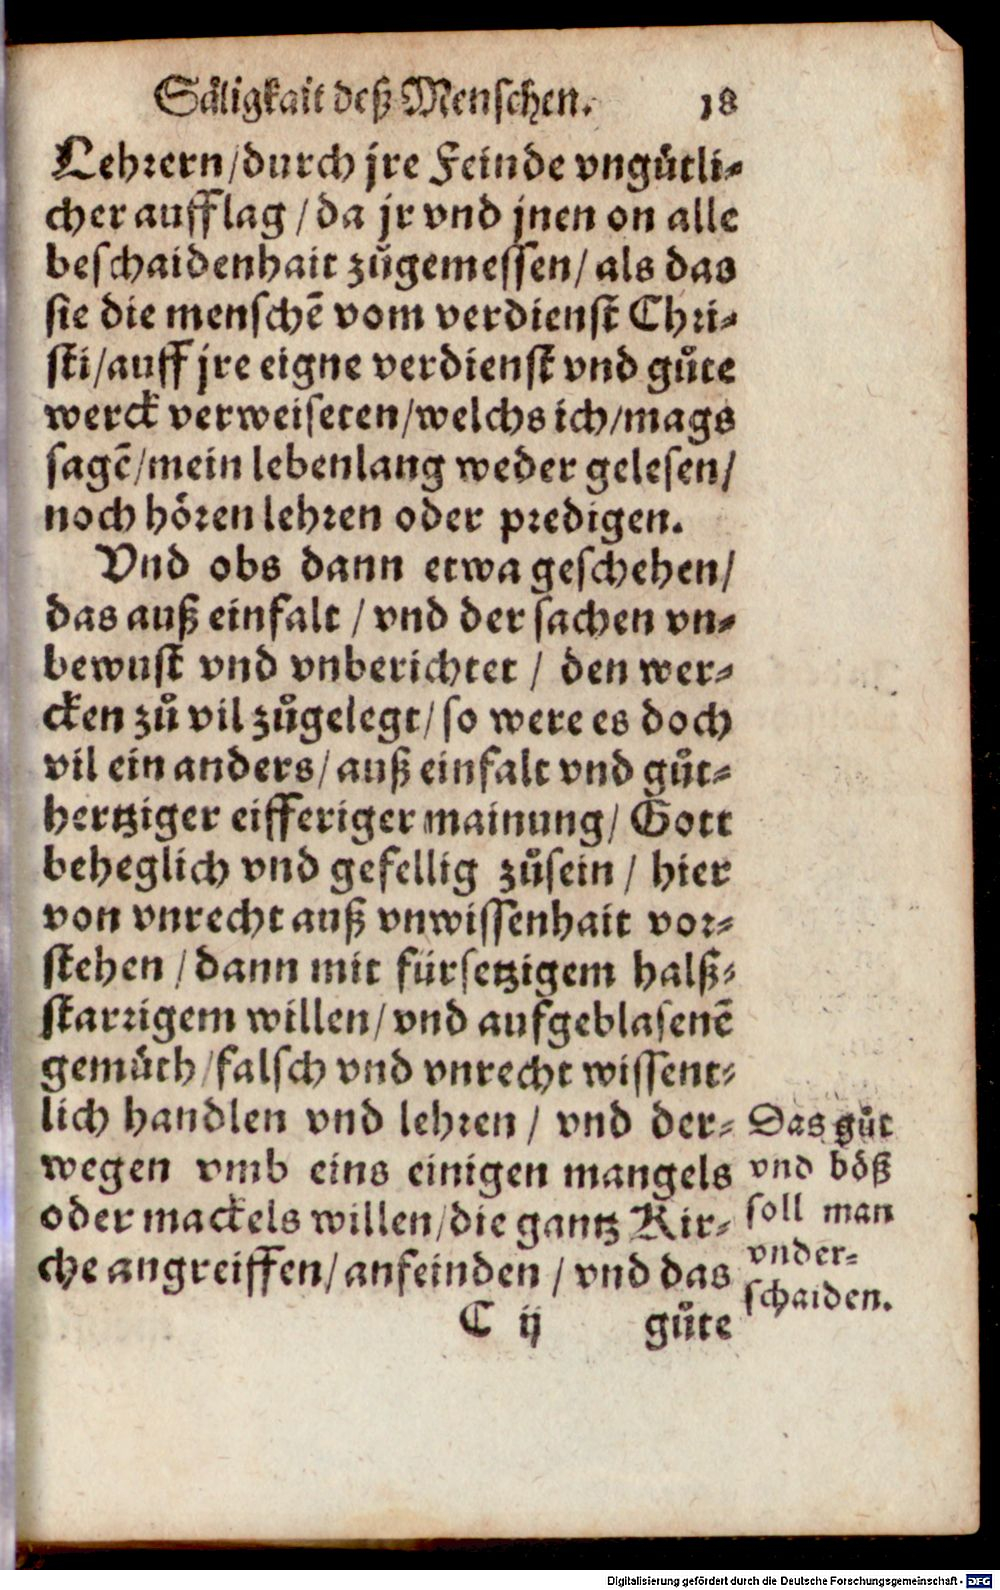 Säligkait deß Menschen. 18
Lehrern/durch jre Feinde vngütli-
cher aufflag/da jr vnd jnen on alle
beschaidenhait zůgemessen/als das
sie die menschẽ vom verdienst Chri-
sti/auff jre eigne verdienst vnd gůte
werck verweiseten/welchs ich/mags
sagẽ/mein lebenlang weder gelesen/
noch hören lehren oder predigen.
Vnd obs dann etwa geschehen/
das auß einfalt/vnd der sachen vn-
bewust vnd vnberichtet/den wer-
cken zů vil zůgelegt/so were es doch
vil ein anders/auß einfalt vnd gůt-
hertziger eifferiger mainung/Gott
beheglich vnd gefellig zůsein/hier
von vnrecht auß vnwissenhait vor-
stehen/dann mit fürsetzigem halß-
starrigem willen/vnd aufgeblasenẽ
gemüth/falsch vnd vnrecht wissent-
lich handlen vnd lehren/vnd der-
wegen vmb eins einigen mangels
oder mackels willen/die gantz Kir-
che angreiffen/anfeinden/vnd das
Das gůt
vnd böß
soll man
vnder-
schaiden.
C ij gůte
Digitalisierung gefördert durch die Deutsche Forschungsgemeinschaft - DFG